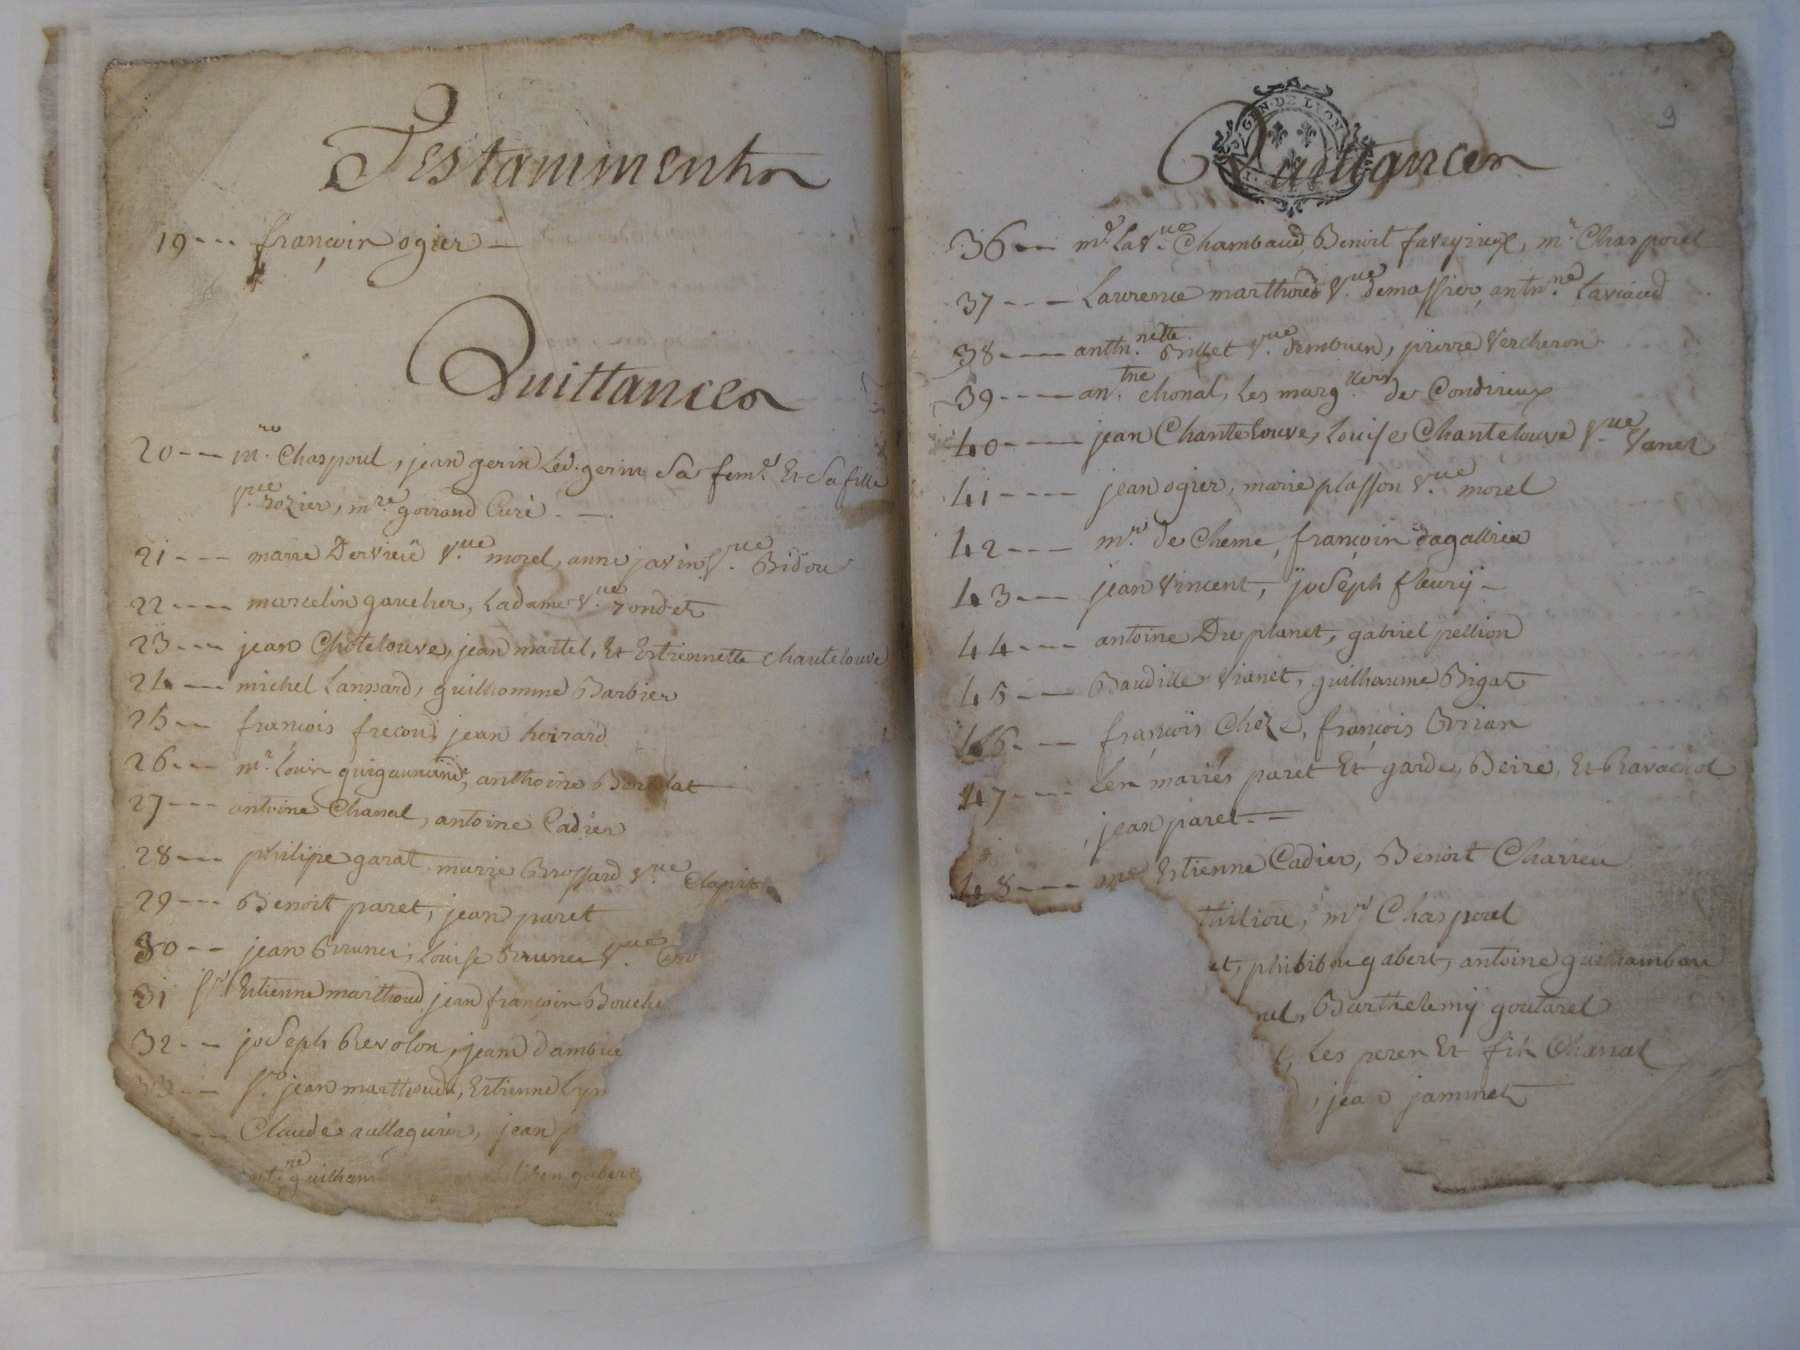 Testamments
19 --- françois ogier -
Quittances
20 --- mr. Chaspoul, jean gerin Led. gerin Sa fem. Et Sa fille
Vue rozier, mre goiraud Curé. -
21 --- marie Dervieu Vue morel, anne javin Vue Bidou
22 ---- marcelin gaucher, Ladame Vue rondet
23 --- jean Chotelouve, jean martel, Et Estiennette chantelouve
24 --- michel Lansard, guilhomme Barbier
25 -- françois frecon, jean heirard
26 --- mr. Louis anthoine
27 --- antoine Chanal, antoine Cadier
28 --- philipe garat, marie Brossard Vue Clapis
29 --- Benoit paret, jean paret
30 -- jean Brunes, Louise Brunes Vue
31 Sr Estienne marthoud jean françois Bouche
32 -- joSeph Revolon, jean dambue
33 -- Sr. jean marthoud, Estienne
-- Claude aullagnier, jean p
guilham gabert
9
GEN. DE LYON
Quittances
36 -- me. La Vue Chambaud, Benoit faveyrieux, mr. Chasporel
37 --- Laurence marthoud Vue demassier, antnne Laviaud
38 ---- anttnnette Vue dembuen, pierre Vercheron
39 ---- antne chonal, Les margllers de Condrieux
40 ---- jean Chantelouve, Louise Chantelouve Vue Vanel
41 ---- jean ogier, marie plasson Vue morel
42 --- mr. de Cheme, françois dagallier
43 --- jean Vincent, joSeph fleurÿ -
44 --- antoine Du planet, gabriel pellion
45 --- Baudille Vianet, guilhaume Bigat
46. -- françois Cheze, françois Brian
47 ---- Les mariés paret Et garde, Beire, Et Ravachol
jean paret. -
48 --- me Estienne Cadier, Benoit Charreu
thiliou, mr Chasporel
et, gabert, antoine guilhambau
nel, Barthelemÿ goutarel
Les peres Et fils Chanal
jean jammet